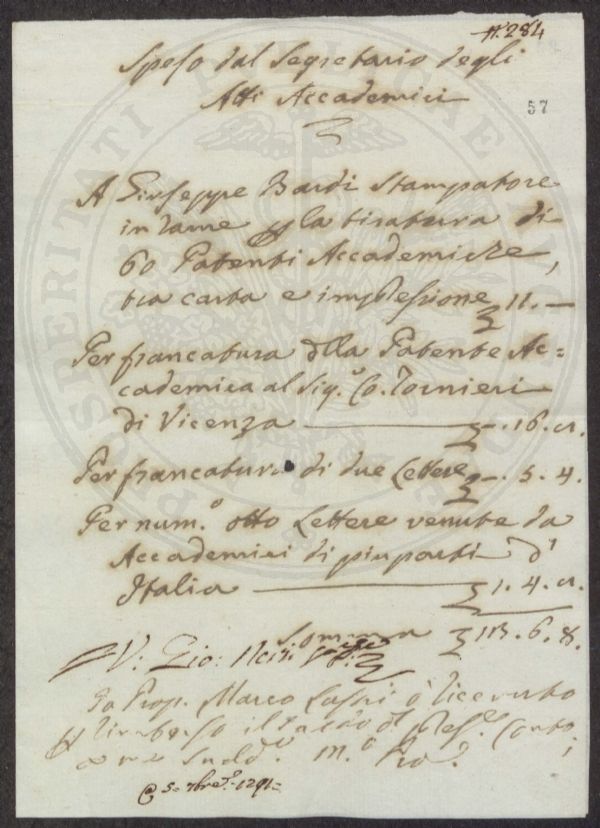 N. 284
Speso dal Segretario degli
Atti Accademici
57
A Giuseppe Bardi Stampatore
in rame p la tiratura di
60 Patenti Accademiche,
tra carta e impressione 11. —
Per francatura della Patente Ac=
cademica al Sig.o Co. Tornieri
di Vicenza — — . 16.
Per francatura di due Lettere — . 5. 4.
Per num.o otto Lettere venute da
Accademici di più parti d'
Italia — 1. 4.
Somma 6. 8.
V: Gio: Neri
Io Prop. Marco Lastri ò ricevuto
p rimborso il saldo del Conto,